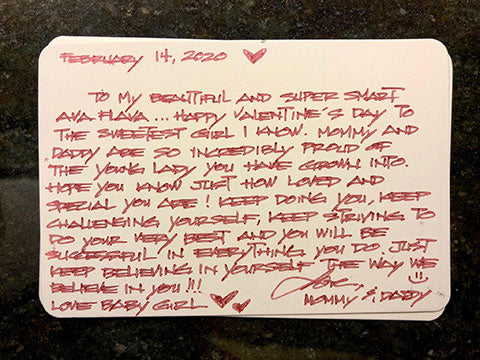 FEBRUARY 14, 2020 ♥
TO MY BEAUTIFUL AND SUPER SMART
AVA FLAVA ... HAPPY VALENTINE'S DAY TO
THE SWEETEST GIRL I KNOW. MOMMY AND
DADDY ARE SO INCREDIBLY PROUD OF
THE YOUNG LADY YOU HAVE GROWN INTO.
HOPE YOU KNOW JUST HOW LOVED AND
SPECIAL YOU ARE! KEEP DOING YOU, KEEP
CHALLENGING YOURSELF, KEEP STRIVING TO
DO YOUR VERY BEST AND YOU WILL BE
SUCCESSFUL IN EVERYTHING YOU DO. JUST
KEEP BELIEVING IN YOURSELF THE WAY WE
BELIEVE IN YOU!!! Love,
LOVE BABY GIRL ♥♥ MOMMY & DADDY